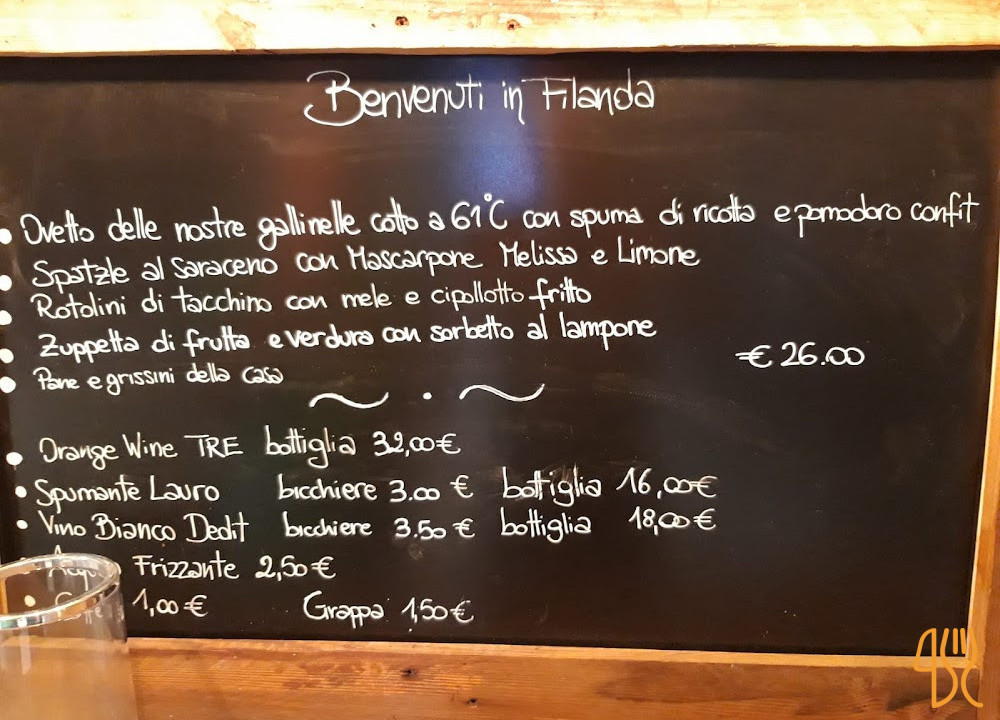 Benvenuti in Filanda
• Ovetto delle nostre gallinelle cotto a 61°C con spuma di ricotta e pomodoro confit
• Spatzle al Saraceno con Mascarpone Melissa e Limone
• Rotolini di tacchino con mele e cipollotto fritto
• Zuppetta di frutta e verdura con sorbetto al lampone
€ 26.00
• Pane e grissini della casa
~ . ~
• Orange Wine TRE bottiglia 32,00€
• Spumante Lauro bicchiere 3.00 € bottiglia 16,00€
• Vino Bianco Dedit bicchiere 3.50 € bottiglia 18,00€
• Acqua Frizzante 2,50€
• 1,00€ Grappa 1,50€